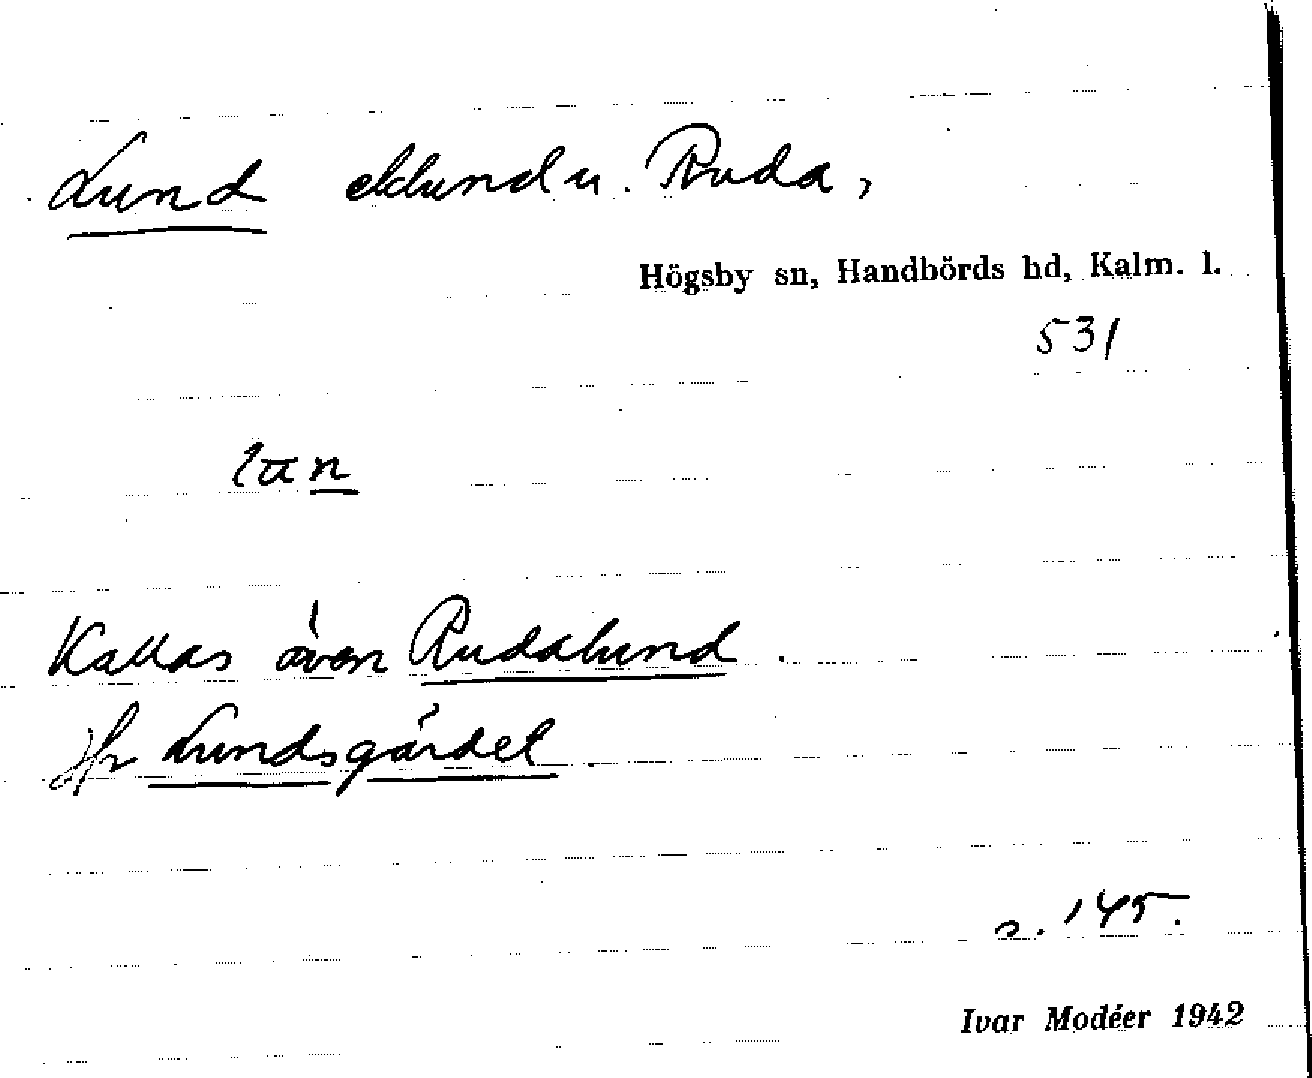 Lund eklund u. Ruda,
Högsby sn, Handbörds hd, Kalm. l.
531
Kallas även Rudalund.
Jfr Lundsgärdet.
s. 145.
Ivar Modéer 1942